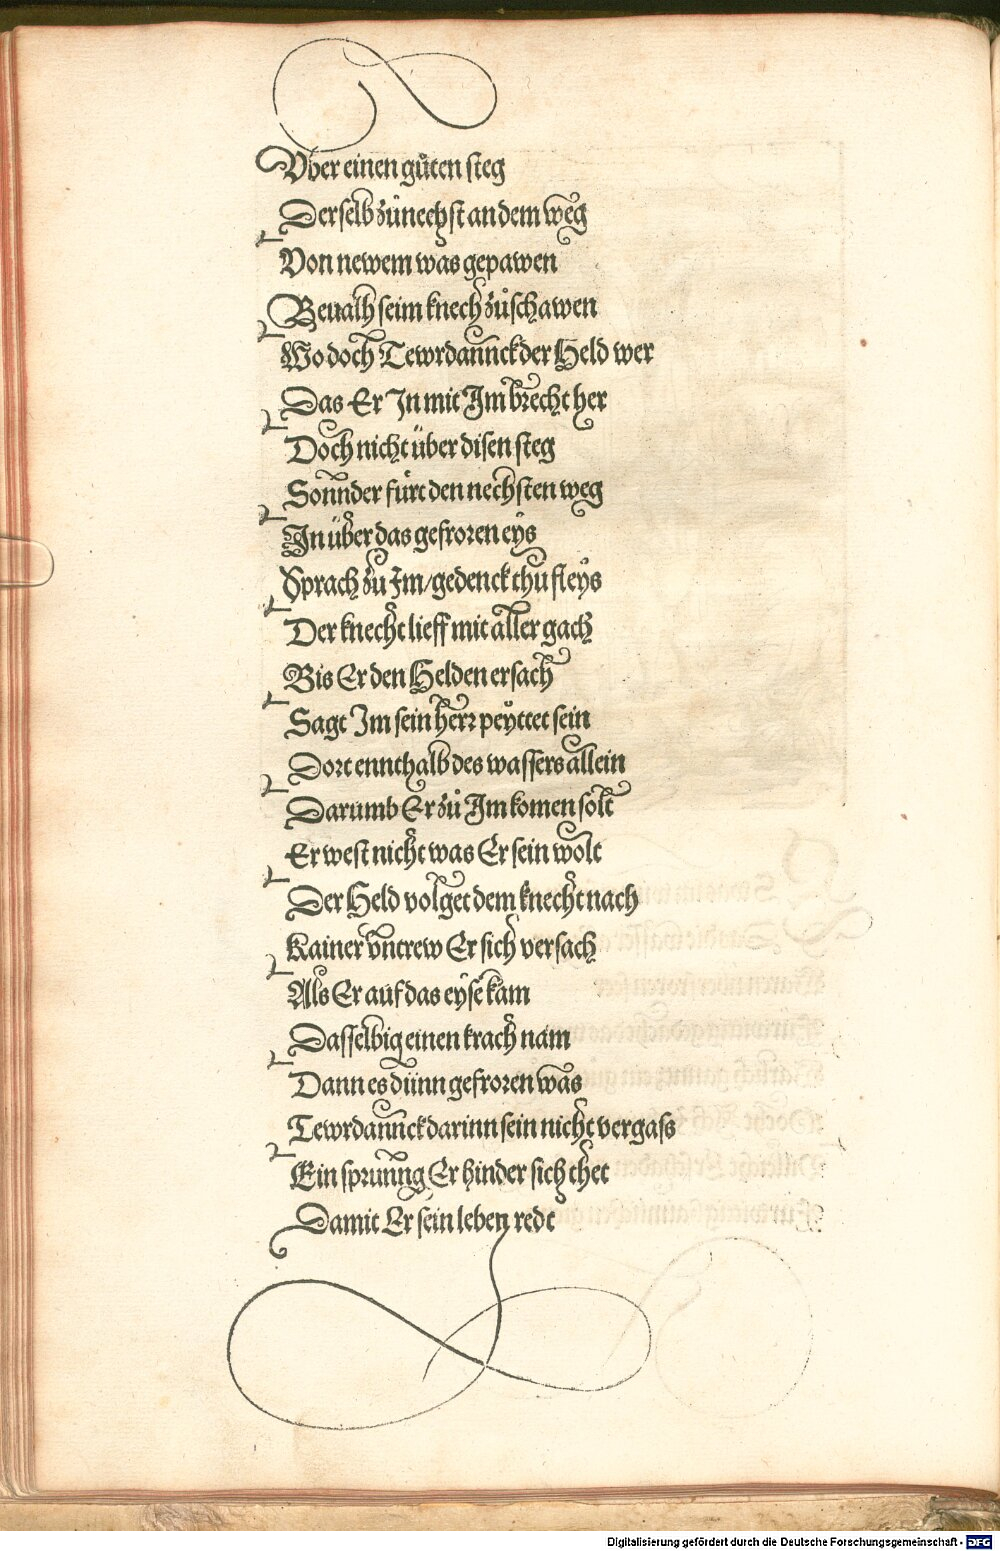 Vber einen gůten steg
Derselb zůnechst an dem weg
Von newem was gepawen
Beualh seim knech zůschawen
Wo doch Tewrdannck der Held wer
Das Er In mit Im brecht her
Doch nicht über disen steg
Sonnder fürt den nechsten weg
In über das gefroren eÿs
Sprach zu Im / gedenck thu fleÿs
Der knecht lieff mit aller gach
Bis Er den Helden ersach
Sagt Im sein herr peÿttet sein
Dort ennthalb des wassers allein
Darumb Er zů Im komen solt
Er west nicht was Er sein wolt
Der Held volget dem knecht nach
Kainer vntrew Er sich versach
Als Er auf das eÿse kam
Dasselbig einen krach nam
Dann es dünn gefroren was
Tewrdannck darinn sein nicht vergass
Ein sprunng Er hinder sich thet
Damit Er sein leben redt
Digitalisierung gefördert durch die Deutsche Forschungsgemeinschaft - DFG